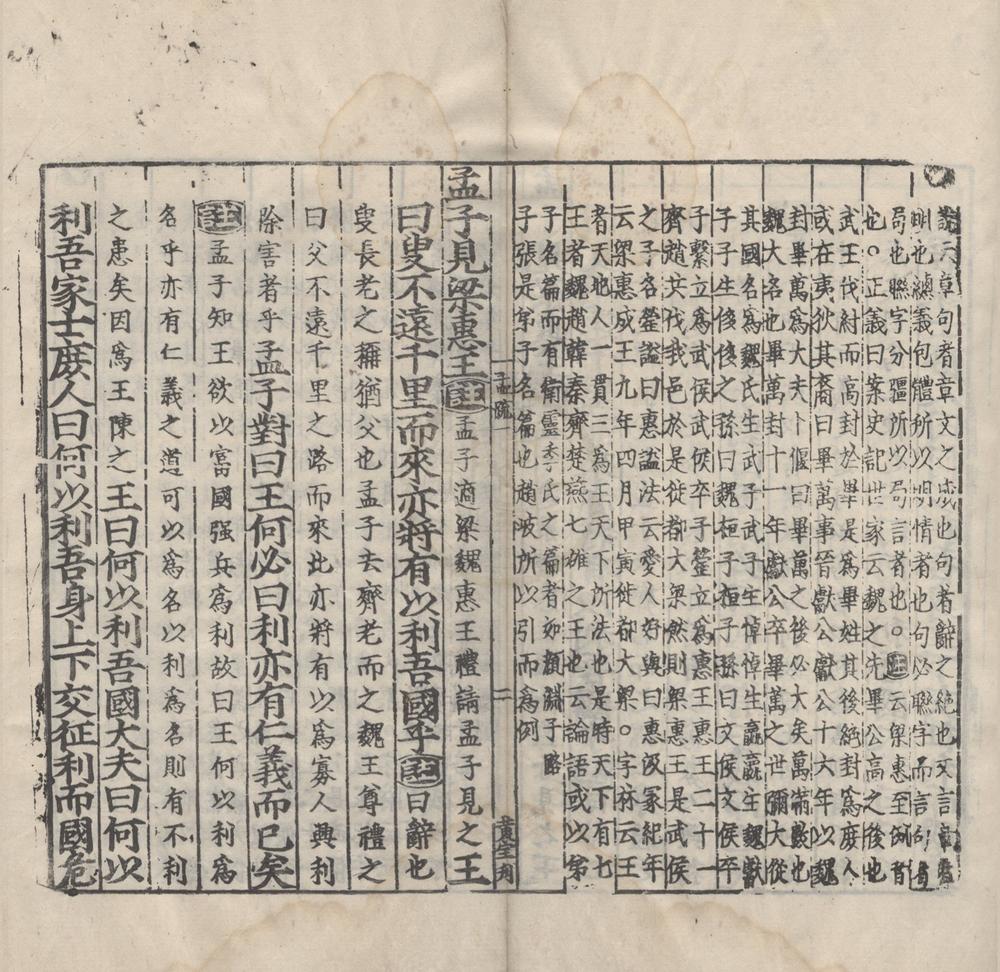 說六章句者章文之成也句者辭之絶也又言章者
明也總義包體所以明情者也句必聯字而言句者
局也聯字分疆所以局言者也○正義曰案史記世家云魏之先畢公高之後也
武王伐紂而高封於畢是爲畢姓其後絶封爲庶人
或在夷狄其裔曰畢萬事晉獻公獻公十六年以魏
封畢萬爲大夫卜偃曰畢萬之後必大矣萬滿數也
魏大名也畢萬封十一年獻公卒畢萬之世彌大從
其國名爲魏氏生武子武子生悼悼生嬴嬴生魏獻
子子生侈侈之孫曰魏桓子桓子孫曰文侯文侯卒
子擊立爲武侯武侯卒子罃立爲惠王惠王二十一
齊趙共伐我邑於是徙都大梁然則梁惠王是武侯
之子名罃謚曰惠謚法云愛人好與曰惠汲冢紀年
云梁惠成王九年四月甲寅徙都大梁○字林云王
者天地人一貫三爲王天下所法也是時天下有七
王者魏趙韓秦齊楚燕七雄之王也云論語或以第
子名篇而有衛靈季氏之篇者如顔淵子路
子張是第子名篇也趙岐所以引而爲例
孟疏一
二
孟子見梁惠王註孟子適梁魏惠王禮請孟子見之王
曰叟不遠千里而來亦將有以利吾國乎註曰辭也
叟長老之稱猶父也孟子去齊老而之魏王尊禮之
曰父不遠千里之路而來此亦將有以爲寡人興利
除害者乎孟子對曰王何必曰利亦有仁義而已矣
註孟子知王欲以富國强兵爲利故曰王何以利爲
名乎亦有仁義之道可以爲名以利爲名則有不利
之患矣因爲王陳之王曰何以利吾國大夫曰何以
利吾家士庶人曰何以利吾身上下交征利而國危